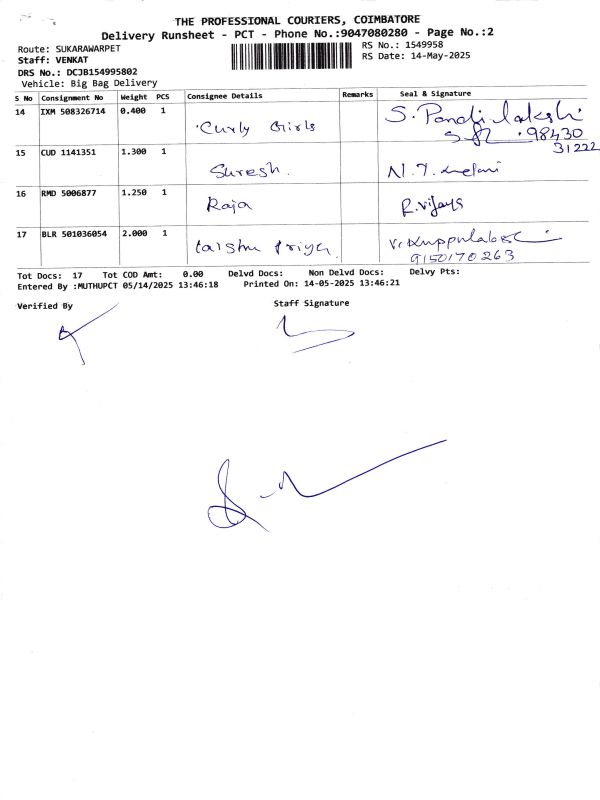 THE PROFESSIONAL COURIERS, COIMBATORE
Delivery Runsheet - PCT - Phone No.:9047080280 - Page No.:2
Route: SUKARAWARPET
RS No.: 1549958
Staff: VENKAT
RS Date: 14-May-2025
DRS No.: DCJB154995802
Vehicle: Big Bag Delivery
S No Consignment No Weight PCS Consignee Details Remarks Seal & Signature
14 IXM 508326714 0.400 1 Curly Girls S. Pandi lakshi
98430
31222
15 CUD 1141351 1.300 1 Suresh.
16 RMD 5006877 1.250 1 Raja R. vijaya
17 BLR 501036054 2.000 1 Priya
9150170263
Tot Docs: 17 Tot COD Amt: 0.00 Delvd Docs: Non Delvd Docs: Delvy Pts:
Entered By :MUTHUPCT 05/14/2025 13:46:18 Printed On: 14-05-2025 13:46:21
Verified By Staff Signature